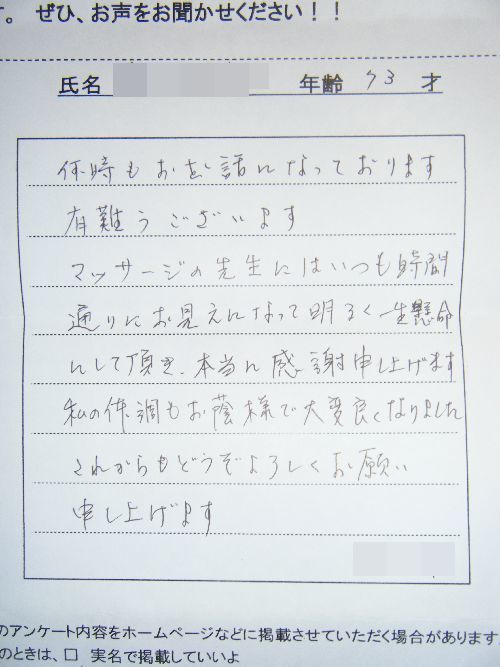 す。 ぜひ、お声をお聞かせください！！
氏名 年齢 73 才
何時もお世話になっております
有難うございます
マッサージの先生にはいつも時間
通りにお見えになって明るく一生懸命
にして頂き、本当に感謝申し上げます
私の体調もお蔭様で大変良くなりました
これからもどうぞよろしくお願い
申し上げます
のアンケート内容をホームページなどに掲載させていただく場合があります
のときは、□ 実名で掲載していいよ